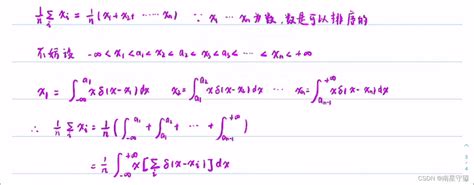 1/n Σ_i x_i = 1/n (x_1 + x_2 + ⋯ x_n) ∵ x_1 ⋯ x_n 为数, 数是可以排序的
不妨设 -∞ < x_1 < a_1 < x_2 < a_2 < x_3 < a_3 < ⋯ < x_n < +∞
x_1 = ∫_{-∞}^{a_1} x δ(x-x_1) dx x_2 = ∫_{a_1}^{a_2} x δ(x-x_2) dx ⋯ x_n = ∫_{a_{n-1}}^{+∞} x δ(x-x_n) dx
∴ 1/n Σ_i x_i = 1/n ( ∫_{-∞}^{a_1} + ∫_{a_1}^{a_2} + ⋯ + ∫_{a_{n-1}}^{+∞} )
= 1/n ∫_{-∞}^{+∞} x [ Σ_i δ(x-x_i) ] dx
CSDN @南星守望